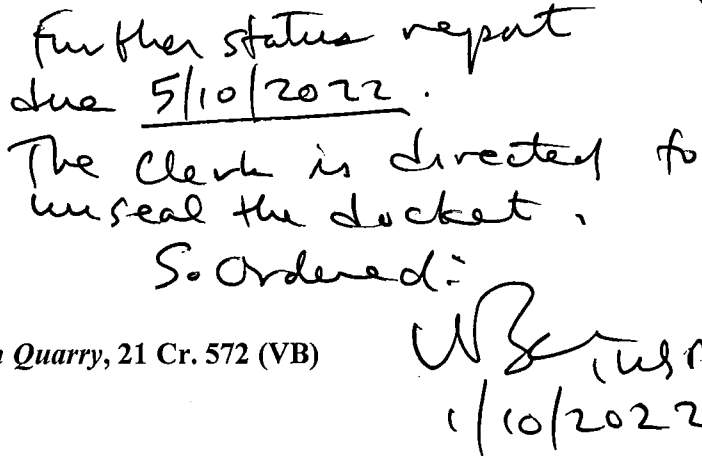 Further status report
due 5/10/2022.
The Clerk is directed to
unseal the docket.
So Ordered:
Quarry, 21 Cr. 572 (VB)
1/10/2022